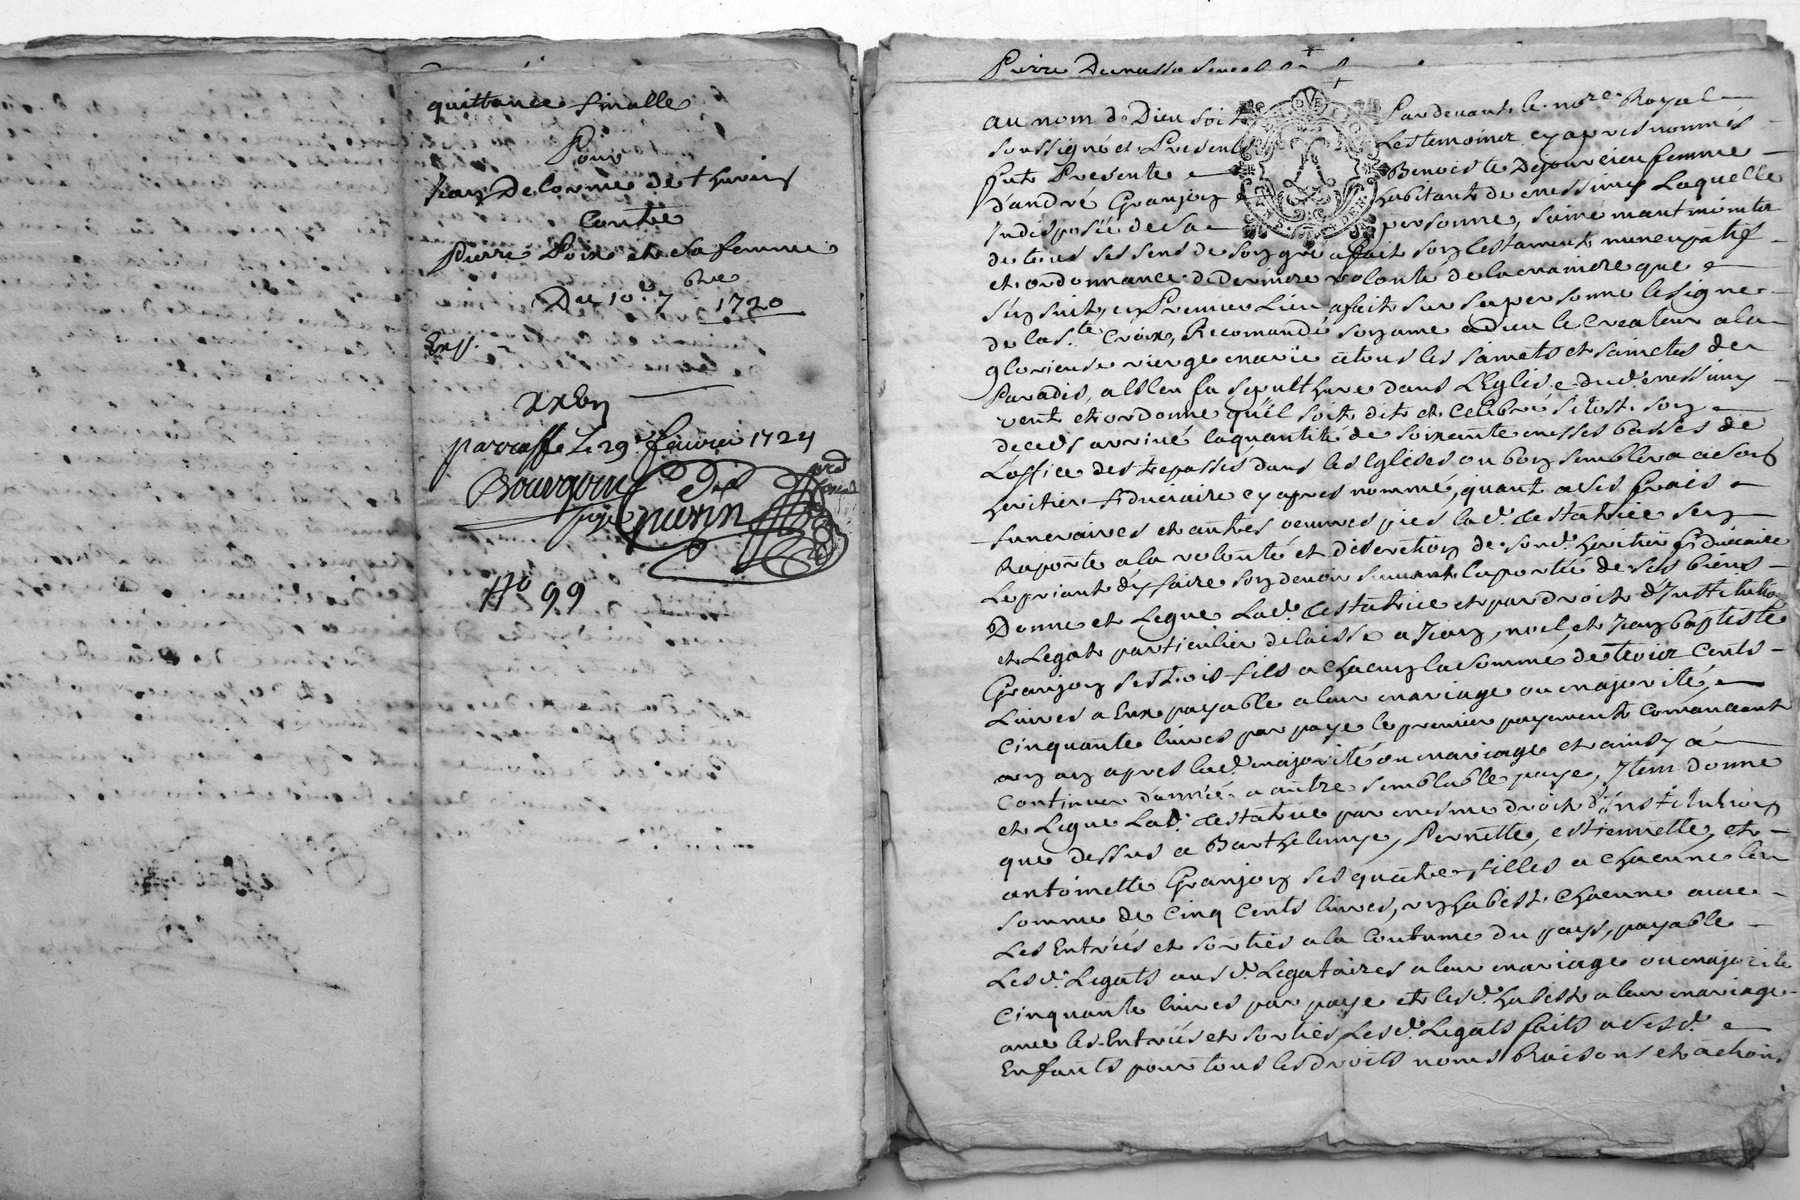 quittance finalle
Pour
Jean Delorme de thurins
Contre
Pierre Poix et sa femme
Du 10e 7bre 1720
Exp.
parraffe Le 29e feurier 1724
Bourgoin
No 99
Pierre
au nom de Dieu soit Pardeuant le nore Royal
soussigné et Presents Les temoins cy apres nommés
fut Presente Benoiste Dejouuencieu femme
d'andré Granjon habitant de messimy Laquelle
Indisposée de sa personne, saine
de tous ses sens de son gré a fait son testament nuncupatif
et ordonnance de Derniere volonté de la maniere que
s'en suit, en Premier Lieu a fait sur sa personne le signe
de la Ste Croix, Recomandé son ame a dieu le Createur a la
glorieuse vierge marie a tous les saincts et sainctes de
Paradis, a Esleu sa sepulthure dans L'Eglise dud. messimy
veut et ordonne qu'il soit dit et celebré sitost son
deceds arriué la quantité de soixante messes basses de
L'office des trepassés dans les Eglises ou bon semblera a son
heritier fiduciaire cy apres nommé, quant a ses frais
funeraires et autres oeuures pies lad. testatrice sen
Raporte a la volonté et discretion de sond. heritier fiduciaire
Le priant d'y faire son deuoir suiuant la portée de ses biens
Donne et Legue Lad. testatrice et par droit d'Institution
et Legat particulier delaisse a Jean, noel, et Jean baptiste
Granjon ses trois fils a chacun la somme de trois cents
Liures a Eux payable a leur mariage ou majorité,
cinquante liures par paye le premier payement comancant
un an apres lad. majorité ou mariage et ainsy a
continuer d'année a autre semblable paye, Item donne
et Legue Lad. testatrice par mesme droit d'institution
que dessus a Barthelemye, Pernette, estiennette, et
antoinette Granjon ses quatre filles a chacune la
somme de cinq cents liures, un habist chacune auec
Les Entrées et sorties a la coutume du pays, payable
Lesd. Legats ausd. Legataires a leur mariage ou majorité
cinquante liures par paye et lesd. habist a leur mariage
auec les Entrées et sorties Lesd. Legats faits a sesd.
Enfants pour tous les droits noms Raisons et actions